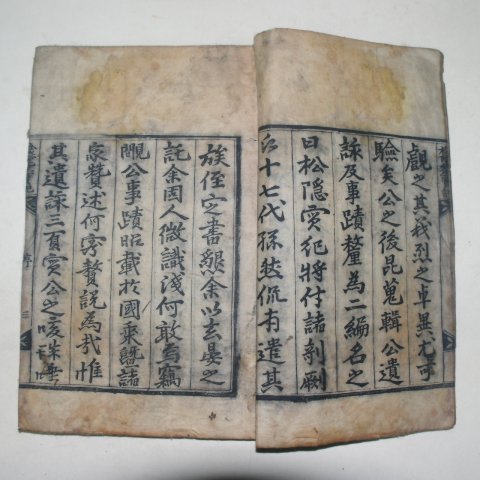 觀之其義烈之卓異尤可
驗矣公之後昆蒐輯公遺
詠及事蹟釐為二編名之
曰松隱實紀將付諸剞劂
公十七代孫 侃有遣其
族侄 書懇余以玄晏之
託余固人微識淺何敢焉竊
覵公事蹟昭載於國乘曁諸
家贊述何淳贅說為哉惟
其遺詠三頁實公之咳珠